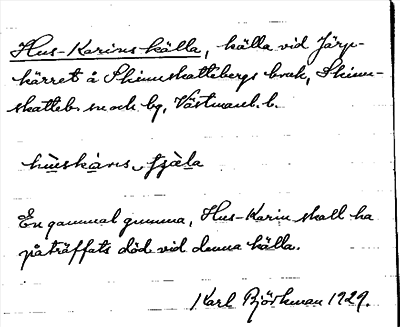 Hus-Karins källa, källa vid Järp-
kärret å Skinnskattebergs bruk, Skinn-
skatteb. sn och bg, Västmanl. l.
En gammal gumma, Hus-Karin skall ha
påträffats död vid denna källa.
Karl Björkman 1929.